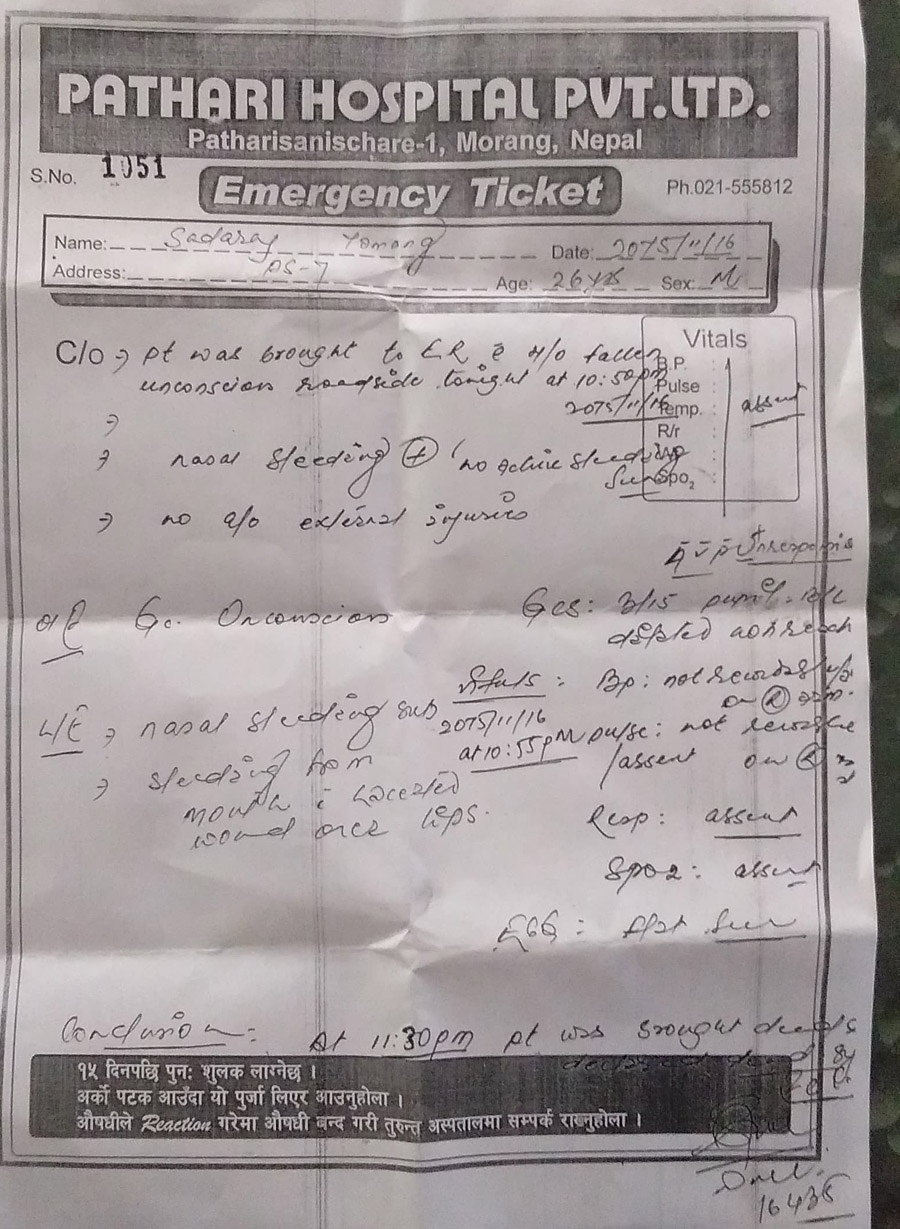 PATHARI HOSPITAL PVT.LTD.
Patharisanischare-1, Morang, Nepal
S.No. 1051
Emergency Ticket
Ph.021-555812
Name: Sadaraj Tamang Date: 2075/11/16
Address: PS-7 Age: 26 yrs Sex: M
Vitals
B.P. :
Pulse :
Temp. :
R/r :
Spo₂ :
absent
C/o → pt was brought to ER c̄ H/o fallen
unconscious roadside tonight at 10:50pm
2075/11/16
→
→ nasal bleeding ⊕ no active bleeding
seen
→ no e/o external injuries
A V P Unresponsive
o/E Gc. Unconscious GCS: 3/15 pupil: B/L
dilated nonreac
L/E → nasal bleeding
→ bleeding from
mouth c̄ lacerated
wound over lips.
Vitals : Bp: not recordable
2075/11/16 on Ⓡ arm.
at 10:55pm pulse: not recordable
/absent on Ⓡ
Resp: absent
Spo2: absent
ECG: flat seen
Conclusion: At 11:30pm pt was brought dead
declared dead by
१५ दिनपछि पुनः शुलक लाग्नेछ ।
अर्को पटक आउँदा यो पुर्जा लिएर आउनुहोला ।
औषधीले Reaction गरेमा औषधी बन्द गरी तुरुन्त अस्पतालमा सम्पर्क राख्नुहोला ।
16435